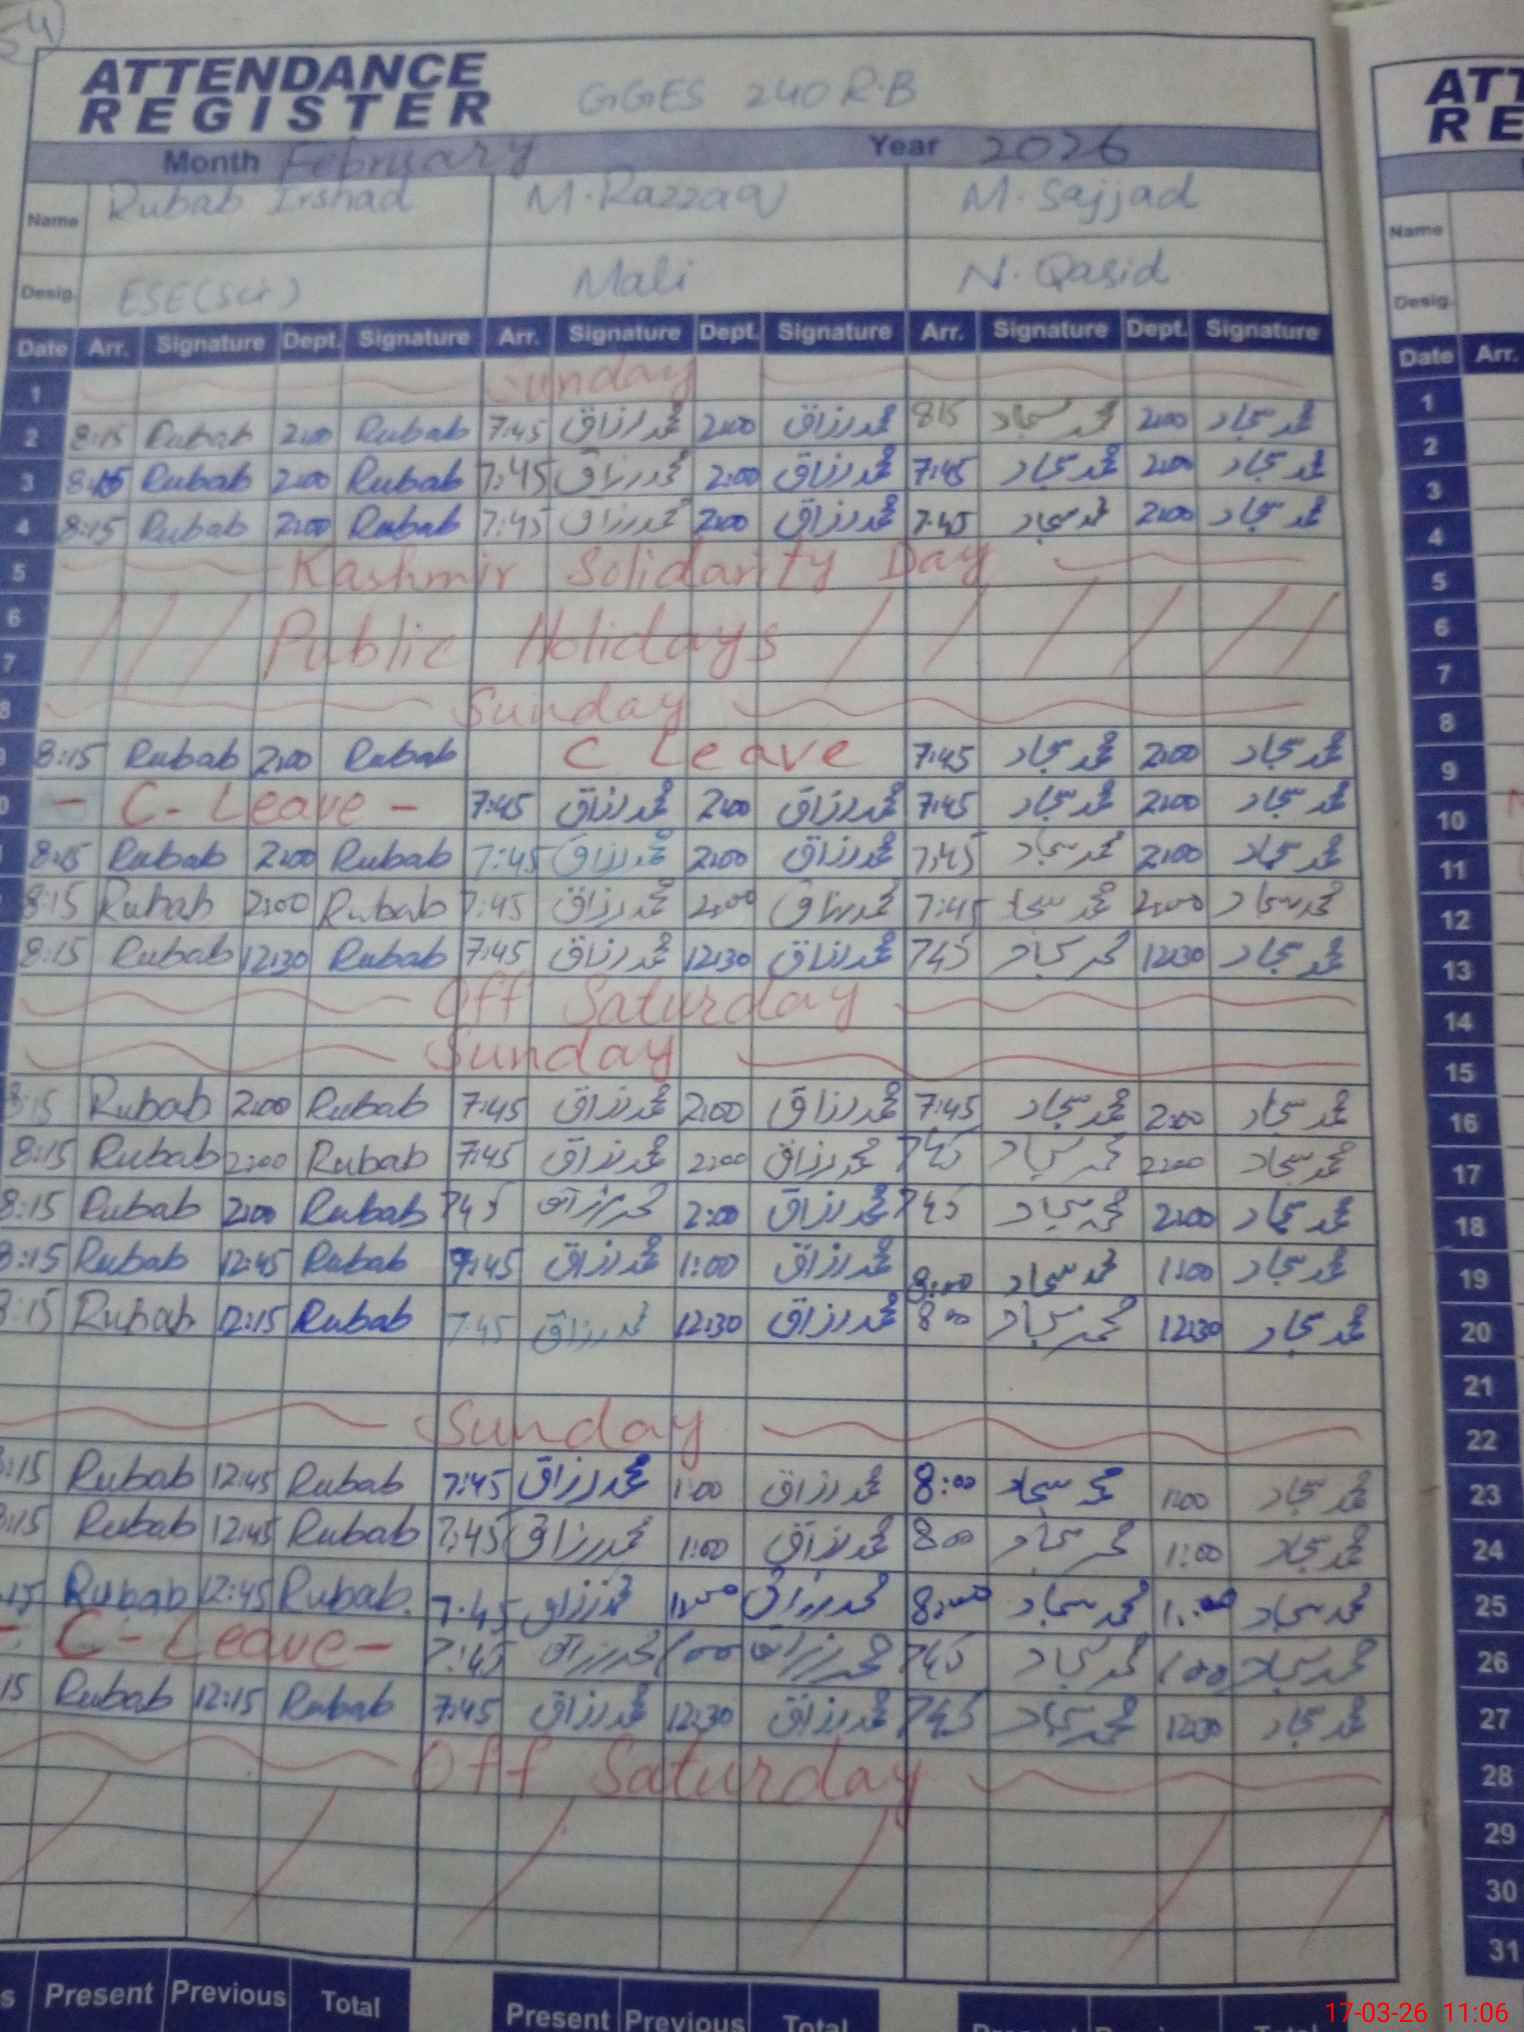 54
ATTENDANCE REGISTER GGES 240 R.B
Month February Year 2026
Name Rubab Irshad M. Razzaq M. Sajjad
Desig. ESE(Sci) Mali N. Qasid
Date Arr. Signature Dept. Signature Arr. Signature Dept. Signature Arr. Signature Dept. Signature
1 Sunday
2 8:15 Rubab 2:00 Rubab 7:45 محمد رزاق 2:00 محمد رزاق 815 محمد سجاد 2:00 محمد سجاد
3 8:15 Rubab 2:00 Rubab 7:45 محمد رزاق 2:00 محمد رزاق 7:45 محمد سجاد 2:00 محمد سجاد
4 8:15 Rubab 2:00 Rubab 7:45 محمد رزاق 2:00 محمد رزاق 7:45 محمد سجاد 2:00 محمد سجاد
5 Kashmir Solidarity Day
6 Public Holidays
7
8 Sunday
8:15 Rubab 2:00 Rubab C Leave 7:45 محمد سجاد 2:00 محمد سجاد
0 - C- Leave - 7:45 محمد رزاق 2:00 محمد رزاق 7:45 محمد سجاد 2:00 محمد سجاد
8:15 Rubab 2:00 Rubab 7:45 محمد رزاق 2:00 محمد رزاق 7:45 محمد سجاد 2:00 محمد سجاد
8:15 Rubab 2:00 Rubab 7:45 محمد رزاق 2:00 محمد رزاق 7:45 محمد سجاد 2:00 محمد سجاد
8:15 Rubab 12:30 Rubab 7:45 محمد رزاق 12:30 محمد رزاق 745 محمد سجاد 12:30 محمد سجاد
Off Saturday
Sunday
8:15 Rubab 2:00 Rubab 7:45 محمد رزاق 2:00 محمد رزاق 7:45 محمد سجاد 2:00 محمد سجاد
8:15 Rubab 2:00 Rubab 7:45 محمد رزاق 2:00 محمد رزاق 745 محمد سجاد 2:00 محمد سجاد
8:15 Rubab 2:00 Rubab 745 محمد رزاق 2:00 محمد رزاق 745 محمد سجاد 2:00 محمد سجاد
8:15 Rubab 12:45 Rubab 7:45 محمد رزاق 1:00 محمد رزاق 8:00 محمد سجاد 1:00 محمد سجاد
8:15 Rubab 12:15 Rubab 7:45 محمد رزاق 12:30 محمد رزاق 800 محمد سجاد 12:30 محمد سجاد
Sunday
:15 Rubab 12:45 Rubab 7:45 محمد رزاق 1:00 محمد رزاق 8:00 محمد سجاد 1:00 محمد سجاد
:15 Rubab 12:45 Rubab 7:45 محمد رزاق 1:00 محمد رزاق 800 محمد سجاد 1:00 محمد سجاد
15 Rubab 12:45 Rubab. 7:45 محمد رزاق 1:00 محمد رزاق 8:00 محمد سجاد 1:00 محمد سجاد
- C- Leave - 7:45 محمد رزاق 100 محمد رزاق 745 محمد سجاد 100 محمد سجاد
15 Rubab 12:15 Rubab 7:45 محمد رزاق 12:30 محمد رزاق 745 محمد سجاد محمد سجاد
Off Saturday
s Present Previous Total Present Previous Total Present Previous Total
ATT
RE
Name
Desig.
Date Arr.
1
2
3
4
5
6
7
8
9
10
11
12
13
14
15
16
17
18
19
20
21
22
23
24
25
26
27
28
29
30
31
17-03-26 11:06